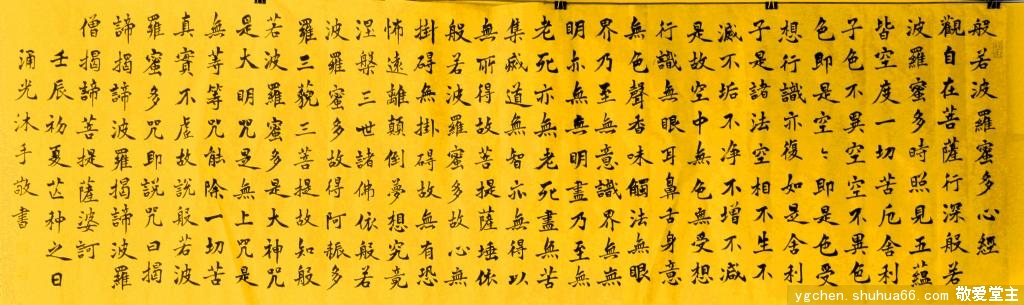 般若波羅蜜多心經
觀自在菩薩行深般若
波羅蜜多時照見五蘊
皆空度一切苦厄舍利
子色不異空空不異色
色即是空々即是色受
想行識亦復如是舍利
子是諸法空相不生不
滅不垢不净不增不減
是故空中無色無受想
行識無眼耳鼻舌身意
無色聲香味觸法無眼
界乃至無意識界無無
明亦無無明盡乃至無
老死亦無老死盡無苦
集滅道無智亦無得以
無所得故菩提薩埵依
般若波羅蜜多故心無
掛碍無掛碍故無有恐
怖遠離顛倒夢想究竟
涅槃三世諸佛依般若
波羅蜜多故得阿耨多
羅三藐三菩提故知般
若波羅蜜多是大神咒
是大明咒是無上咒是
無等等咒能除一切苦
真實不虛故說般若波
羅蜜多咒即說咒曰揭
諦揭諦波羅揭諦波羅
僧揭諦菩提薩婆訶
壬辰初夏芒神之日
涌光沐手敬書
ygchen.shuhua66.com 敬爱堂主